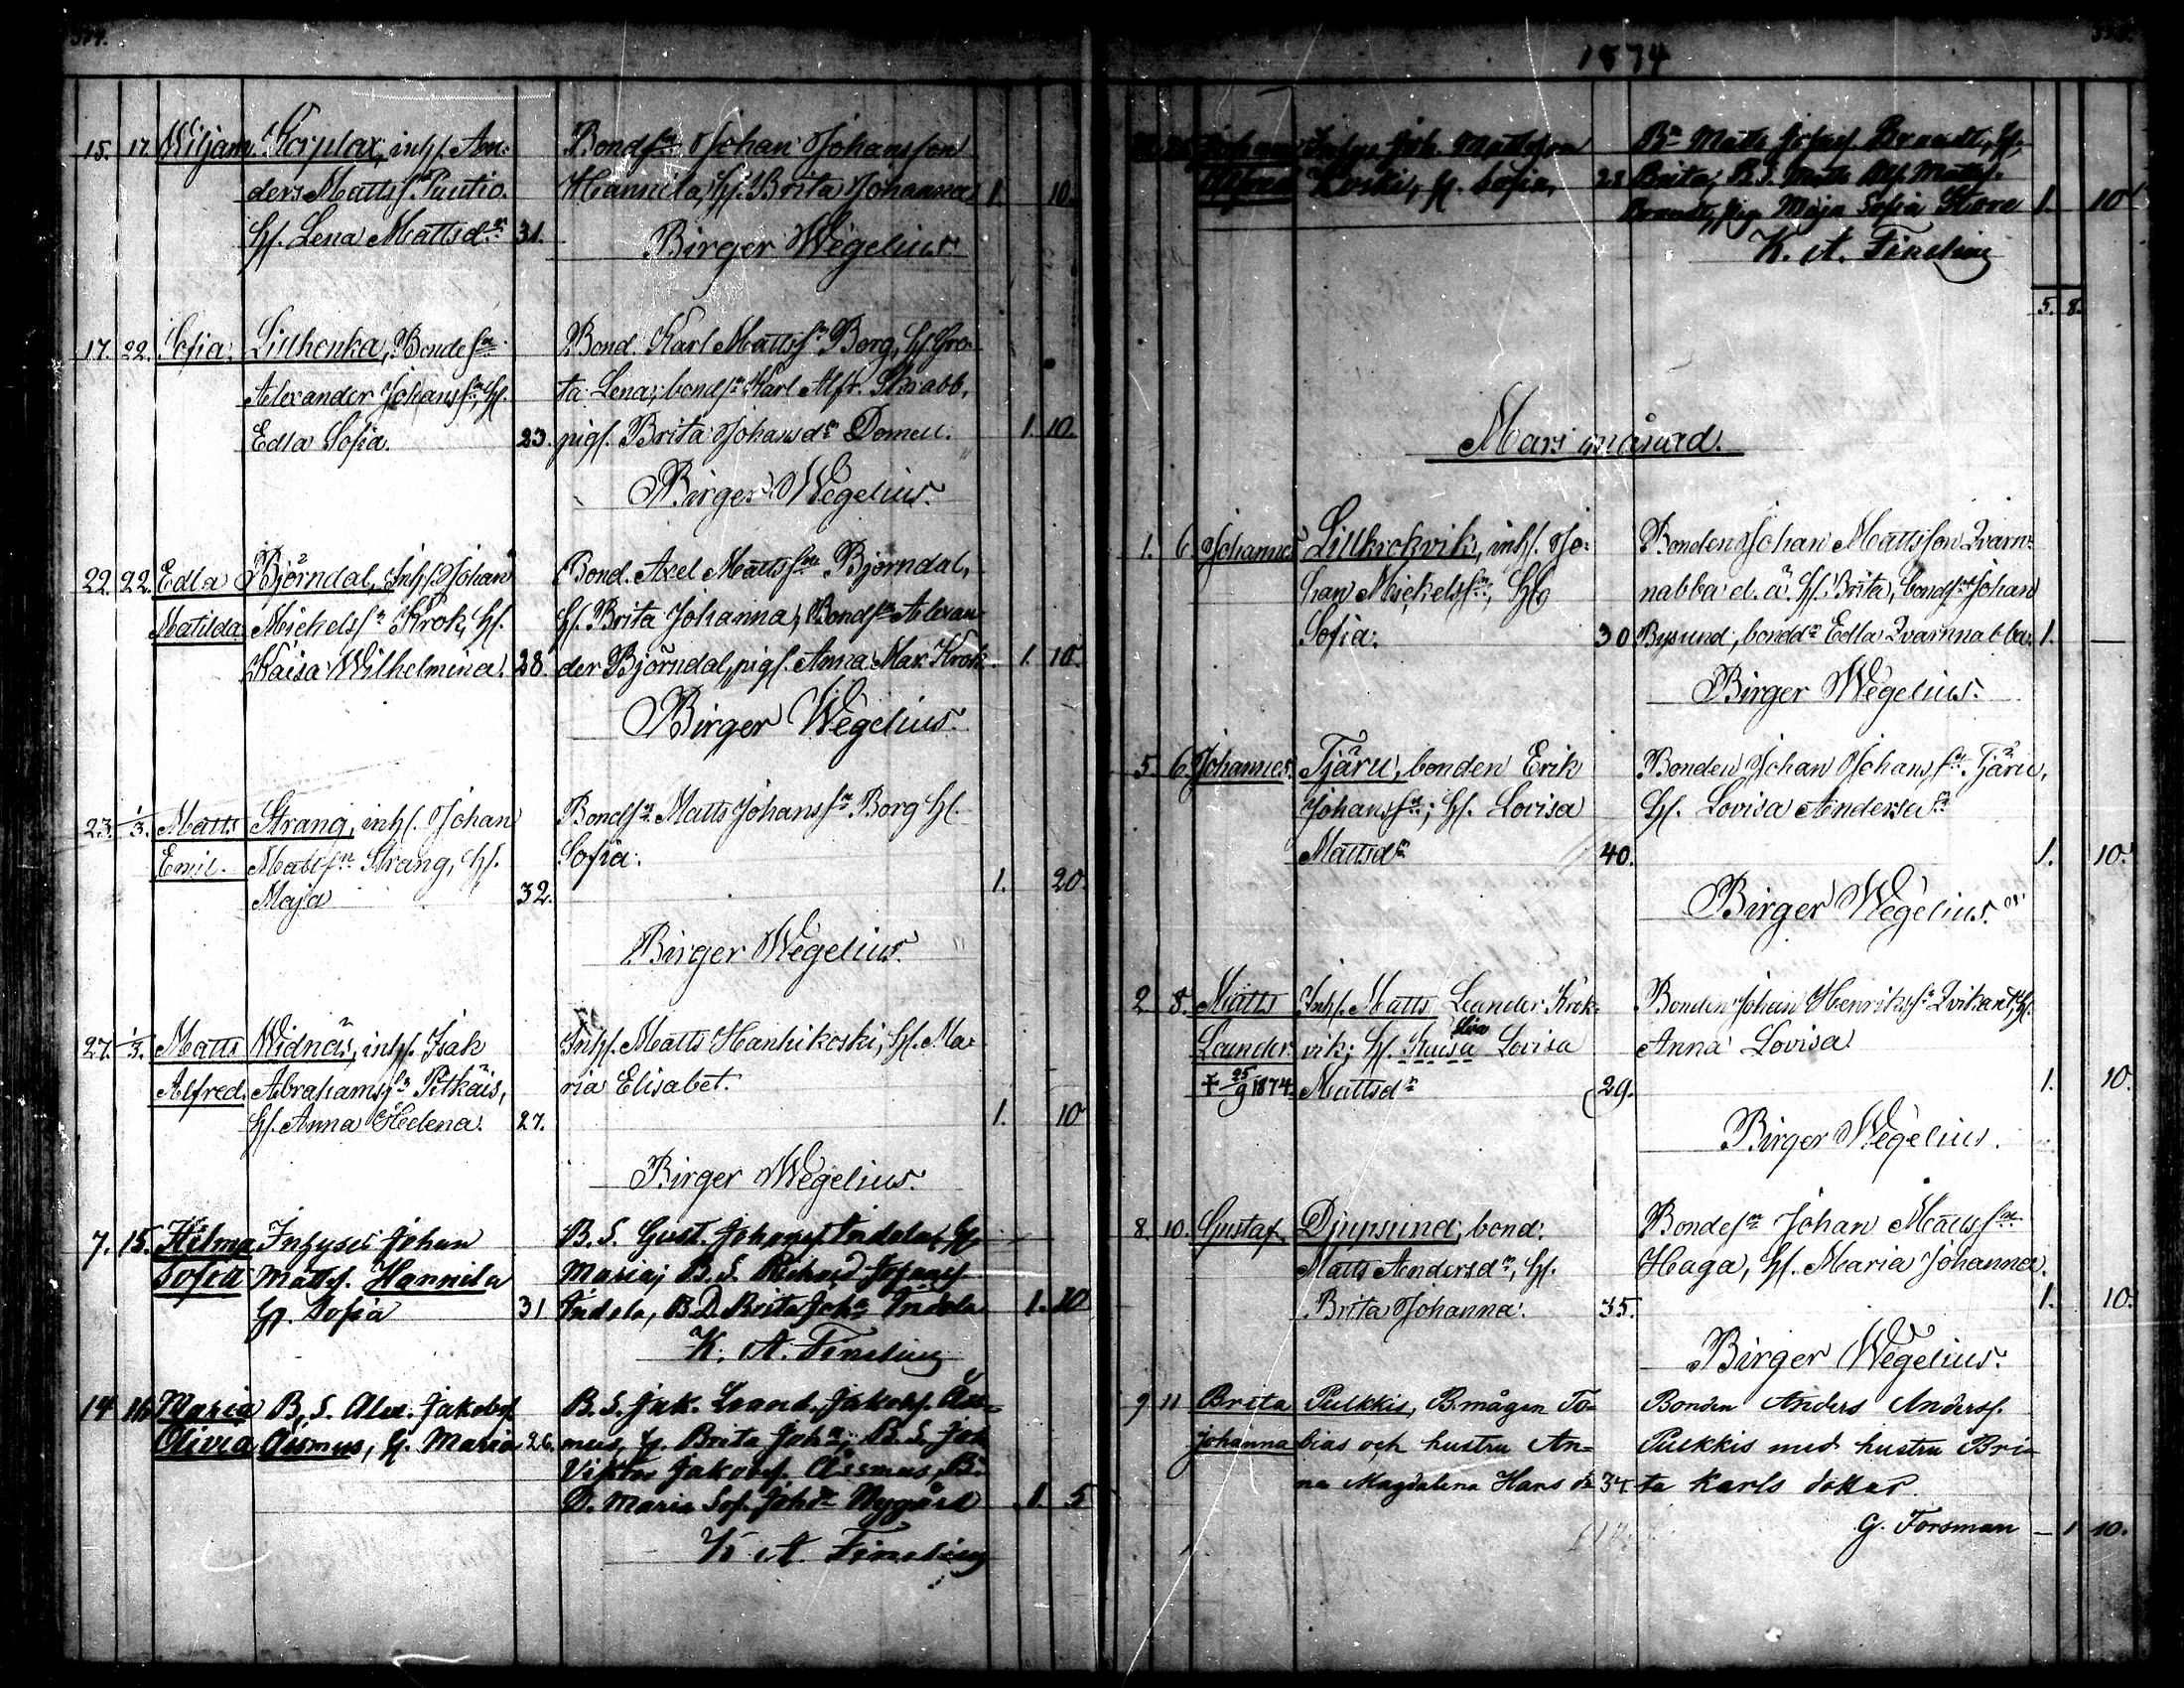 15. 17. Wiljam. Korplax, inhs. An-
ders Mattss. Puutio.
Hs. Lena Mattsdr 31.
Bondsn Johan Johansson
Hannila, Hs. Brita Johanna 1. 10.
Birger Wegelius.
17. 22. Sofia, Lillhonka, Bondesn
Alexander Johanssn, Hs.
Edla Sofia. 23.
Bond. Karl Mattssn Borg, Hs. Gre-
ta Lena; bondsn Karl Alfr. Skrabb,
pigs. Brita Johansdr Domell. 1. 10.
Birger Wegelius.
22. 22. Edla Björndal, Inhs. Johan
Matilda Michelssn Krok, Hs.
Kaisa Wilhelmina. 28.
Bond. Axel Mattssn Björndal,
Hs. Brita Johanna, Bondsn Alexan
der Björndal, pigs. Anna Mar. Krok 1. 10.
Birger Wegelius.
23. 1/3. Matts Strang, inhs. Johan
Emil. Matssn Strang, Hs.
Maja 32.
Bondsn Matts Johanssn Borg Hs.
Sofia. 1. 20.
Birger Wegelius.
27. 1/3. Matts Widnäs, inhs. Isak
Alfred. Abrahamssn Pitkäis,
Hs. Anna Helena. 27.
Inhs. Matts Hanhikoski, Hs. Ma-
ria Elisabet. 1. 10
Birger Wegelius.
7. 15. Hilma Inhyses Johan
Sofia Matts. Hannila
H. Sofia 31
B. S. Gust. Johanss. Indola, H.
Maria; B. S. Richard Johanss.
Indola, B. D. Brita Joha Indola 1. 10
K. A. Fineling
14 16 Maria B. S. Alex. Jakobss.
Olivia Assmus, H. Maria 26.
B. S. Jak. Leand. Jakobs. Ass-
mus, H. Brita Joha; B. S. Joh
Viktor Jakobss. Assmus, B.
D. Maria Sof. Johdr Nygård 1. 5
K A. Fineling
1874
Johannes Inhys Joh. Mattsson
Alfred Koski, H. Sofia, 28
Bn Matts Josefs. Brandt, H.
Brita, B. S. Matts Alf. Matts.
Brandt, pig. Maja Sofia Store 1. 10
K. A. Fineling
5. 8.
Mars månad.
1. 6 Johannes Lillkrokvik, inhs. Jo-
han Mickelssn, Hs.
Sofia. 30
Bonden Johan Mattsson Qvarn-
nabba d. ä. Hs. Brita, bondsn Johan
Bysund, bonddr Edla Qvarnnabba. 1. —
Birger Wegelius.
5 6 Johannes. Tjäru, bonden Erik
Johanssn; Hs. Lovisa
Mattsdr 40.
Bonden Johan Johanssn Tjäru,
Hs. Lovisa Andersdr
1. 10.
Birger Wegelius.
2 8. Matts Inhs. Matts Leander Krok-
Leander. vik; Hs. Kaisa Lovisa
† 25/9 1874. Mattsdr 29.
Bonden Johan Henrikssn Qvikant, Hs.
Anna Lovisa
1. 10.
Birger Wegelius.
8. 10. Gustaf Djupsund, bond.
Matts Andersdr, Hs.
Brita Johanna. 35.
Bondesn Johan Mattssn
Haga, Hs. Maria Johanna.
1. 10.
Birger Wegelius.
9 11 Brita Pulkkis, B. mågen To-
Johanna bias och hustru An-
na Magdalena Hans dr 34
Bonden Anders Anderss.
Pulkkis med hustru Bri-
ta Karls dotter.
G. Forsman — 1 10.